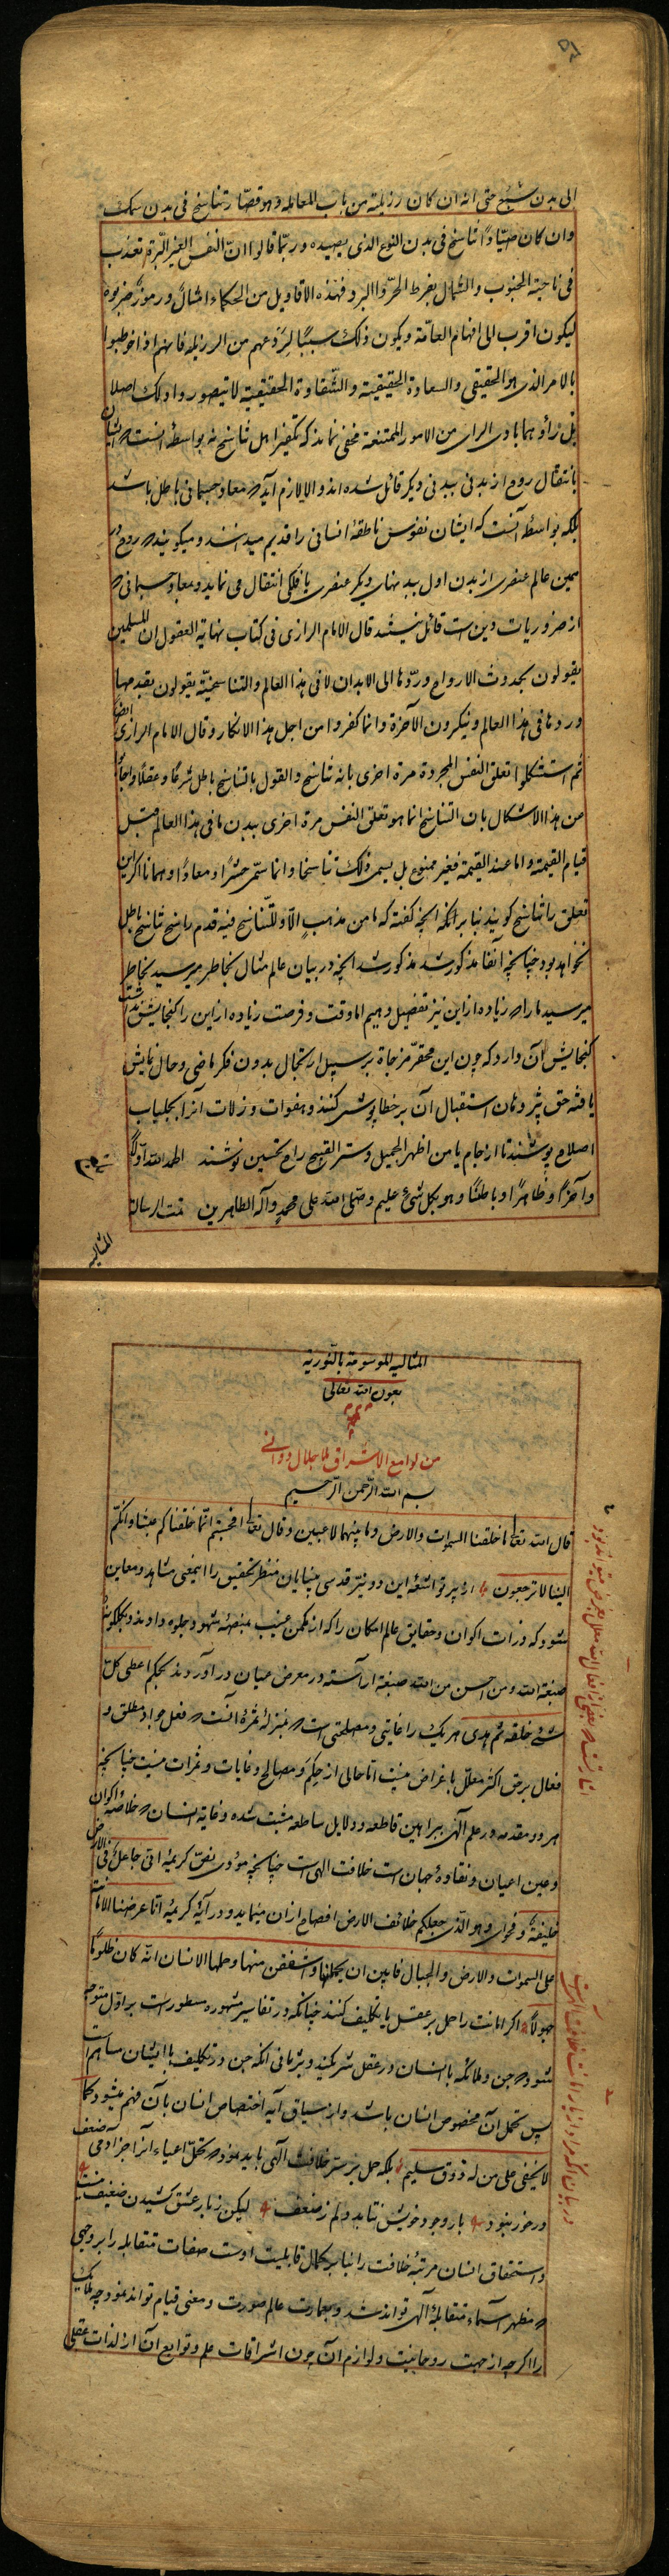 الی بدن سبع حتی انه ان کان رزیلته من باب المعامله وهو قصّاب تناسخ فی بدن سمک
وان کان صیّاداً تناسخ فی بدن النوع الذی یصیده وربّما قالوا انّ النفس الغیر البّرة تعذب
فی ناحیة الجنوب والشمال بفرط الحرّ والبرد فهذه الاقاویل من الحکماء امثالٌ و رموزٌ ضربوه
لیکون اقرب الی افهام العامّة ویکون ذلک سببًا لِرَدعهم من الرزیله فانهم اذا خوطبوا
بالامر الذی هو الحقیقی والسعادة الحقیقیة والشّقاوة الحقیقیة لا یتصوروا ذلک اصلا
بل رأوهما بادی الرای من الامور الممتنعة مخفی نماند که تکفیر اهل تناسخ نه بواسطهٔ انست که ایشان
بانتقال روح از بدنی ببدنی دیگر قائل شده اند والا لازم آید که معاد جسمانی باطل باشد
بلکه بواسطهٔ آنست که ایشان نفوس ناطقهٔ انسانی را قدیم میدانند و میکویند که روح در
همین عالم عنصری از بدن اول ببدنهای دیگر عنصری یا فلکی انتقال می نماید و بمعاد جسمانی که
از ضروریات دین است قائل نیستند قال الامام الرازی فی کتاب نهایة العقول ان المسلمین
یقولون بحدوث الارواح و ردّها الی الابدان لا فی هذا العالم والتناسخیّة یقولون بقدمها
وردها فی هذا العالم وینکرون الآخرة وانما کفروا من اجل هذا الانکار وقال الامام الرازی ایضاً
ثم استشکلوا تعلق النفس المجردة مرة اخری بانه تناسخ والقول بالتناسخ باطل شرعًا وعقلًا واجابوا
من هذا الاشکال بان التناسخ انما هو تعلق النفس مرة اخری ببدن ما فی هذا العالم قبل
قیام القیمة واما عند القیمة فغیر ممنوع بل یسمی ذلک تناسخا وانما سمّی حشرًا و معادًا وهمانا اکر این
تعلق را تناسخ کویند بنا بر انکه انچه کفته که ما من مذهبٍ الاّ وللتّناسخ فیه قدم راسخ تناسخ باطل
نخواهد بود چنانچه آنفا مذکور شد مذکور شد انچه در بیان عالم مثال بخاطر میرسید بخاطر
میرسید ما را که زیاده از این نیز تفصیل دهیم اما وقت و فرصت زیاده از این را کنجایش نداشت
کنجایش آن دارد که چون این محقّر مزجاة بر سبیل ارتجال بدون فکر ماضی و حال نمایش
یافته حق پژوهان استقبال آن بر خطاپوشی کنند و هفوات و زلات آنرا بجلباب
اصلاح پوشند تا از جام یا من اظهر الجمیل وستر القبیح راح تحسین نوشند الحمد لله اولًا
وآخرًا وظاهرًا وباطنًا وهو بکل شیء علیم وصلّی الله علی محمدٍ وآله الطاهرین تمت الرسالة
المثالیه
المثالیه الموسومة بالنّوریة
بعون الله تعالی
من لوامع الاشراق للاجلال دوانی
بسم الله الرّحمن الرّحیم
قال الله تعا ما خلقنا السموات والارض وما بینهما لاعبین وقال تعا افحسبتم انّما خلقناکم عبثا وانکّم
الینا لا ترجعون از پرتو اشعهٔ این دو نیّر قدسی بینایان منظر تحقیق را اینمعنی مشاهد و معاین
شود که ذرات اکوان و حقایق عالم امکان را که از مکمن غیب بمنصّهٔ شهود جلوه داده‌اند و بکلکونهٔ
صبغة الله ومن احسن من الله صبغة آراسته در معرض عیان در آورده‌اند بحکم اعطی کلّ
شیٔ خلقه ثم هدی هر یک را غایتی و مصلحتی است که بمنزلهٔ ثمرهٔ آنست که فعل جواد مطلق و
فعال برحق اکر معلّل باغراض نیست اما خالی از حِکَم و مصالح و غایات و ثمرات نیست چنانچه
هر دو مقدمه در علم الٓهی ببراهین قاطعه و دلایل ساطعه مثبت شده و غایة انسان که خلاصهٔ اکوان
وعین اعیان و نقاوهٔ جهان است خلافت الهی است چنانچه مؤدی نصّ کریمهٔ انی جاعلٌ فی الارض
خلیفةً و فحوای وهو الّذی جعلکم خلائف الارض افصاح ازان مینماید و در آیهٔ کریمهٔ انّا عرضنا الامانة
علی السموات والارض والجبال فابین ان یحملنها واشفقن منها وحملها الانسان انّه کان ظلومًا
جهولًا اکر امانت را حمل بر عقل یا تکلیف کنند چنانکه در تفاسیر مشهوره مسطور است بر اوّل متوجه
شود که جن و ملائکه با انسان در عقل شریکند و بر ثانی انکه جن در تکلیف با ایشان مساهم است
پس تحمل آن مخصوص انسان باشد و از سیاق آیه اختصاص انسان بآن فهم میشود کما
لا یخفی علی من له ذوق سلیم بلکه حمل بر سرّ خلافت الٓهی باید نمود که تحمّل اعباء آنرا جز آدمی ضعیف
در خور نبود با روجود خویش نتابد دلم ز ضعف لیکن ز بار عشق کشیدن ضعیف نیست
و استحقاق انسان مرتبهٔ خلافت را بنا بر کمال قابلیت اوست صفات متقابله را بروجهی
که مظهر اسماء متقابلهٔ الٓهی تواند شد و بعمارت عالم صورت و معنی قیام تواند نمود چه ملائک
را اکرچه از جهت روحانیت و لوازم آن چون اشراقات علم و توابع آن از لذات عقلی